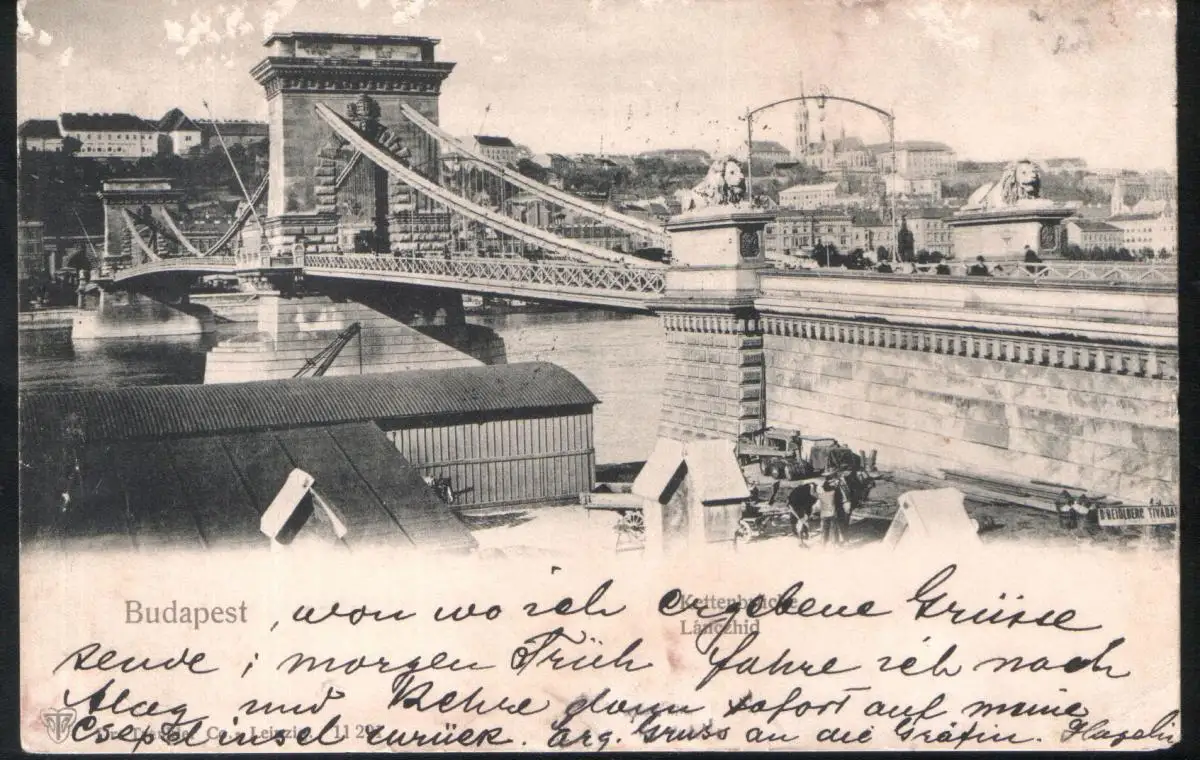 D' HEIDLBERG TIVADAR
Budapest
Kettenbrücke
Lánczhid
, von wo ich ergebene Grüsse
sende ; morgen Früh fahre ich nach
Alag und kehre dann sofort auf meine
Csepelinsel zurück. Erg. Gruss an die Gräfin.
Co., Leipzig. 11 29